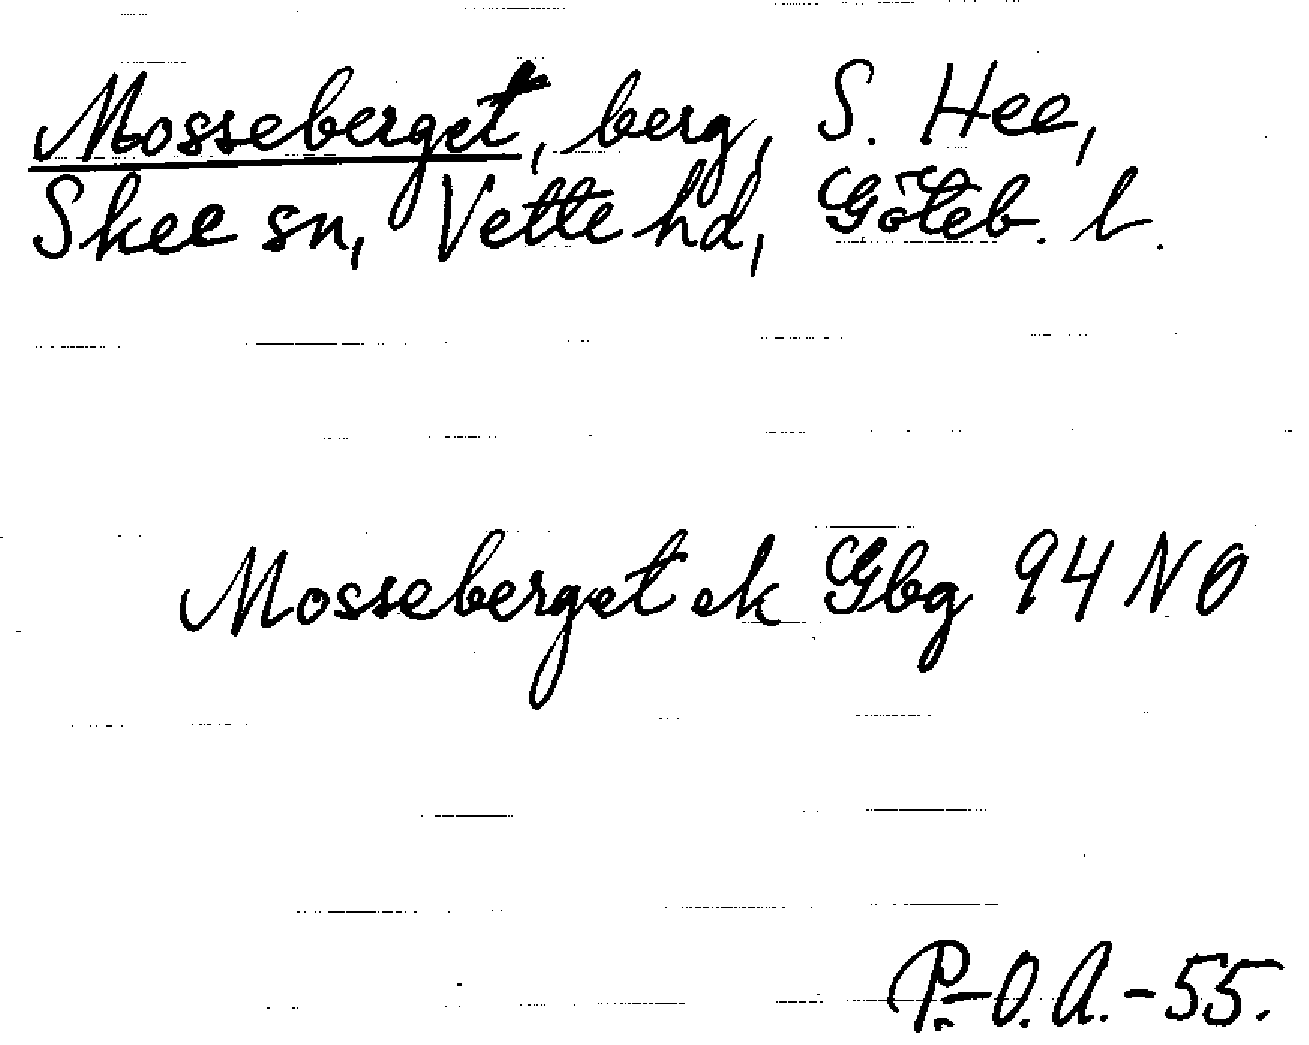 Mosseberget, berg, S. Hee,
Skee sn, Vette hd, Göteb. l.
Mosseberget ek Gbg 94 NO
P.-O. A.-55.